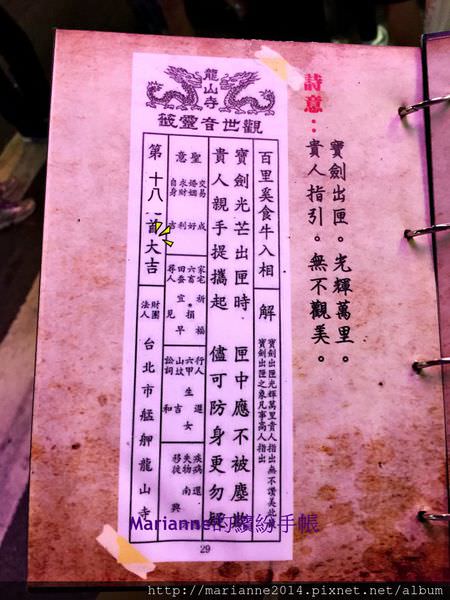 詩意：
寶劍出匣。光輝萬里。
貴人指引。無不觀美。
龍山寺
觀世音靈籤
百里奚食牛入相
解
寶劍出匣光輝萬里貴人指出無不讚美此
寶劍出匣之象凡事高人指出
寶劍光芒出匣時 匣中應不被塵
貴人親手提攜起 儘可防身更勿疑
聖意
交易 成
婚姻 好
求財 利
自身 吉
家宅 祈福
六畜 損
田蚕 宜早
尋人 見
行人 還
六甲 生女
山坟 吉
訟詞 和
疾病 還
失物 南
移徙 興
第十八首大吉
財團法人台北市艋舺龍山寺
29
Marianne的繽紛手帳
http://marianne2014.pixnet.net/album